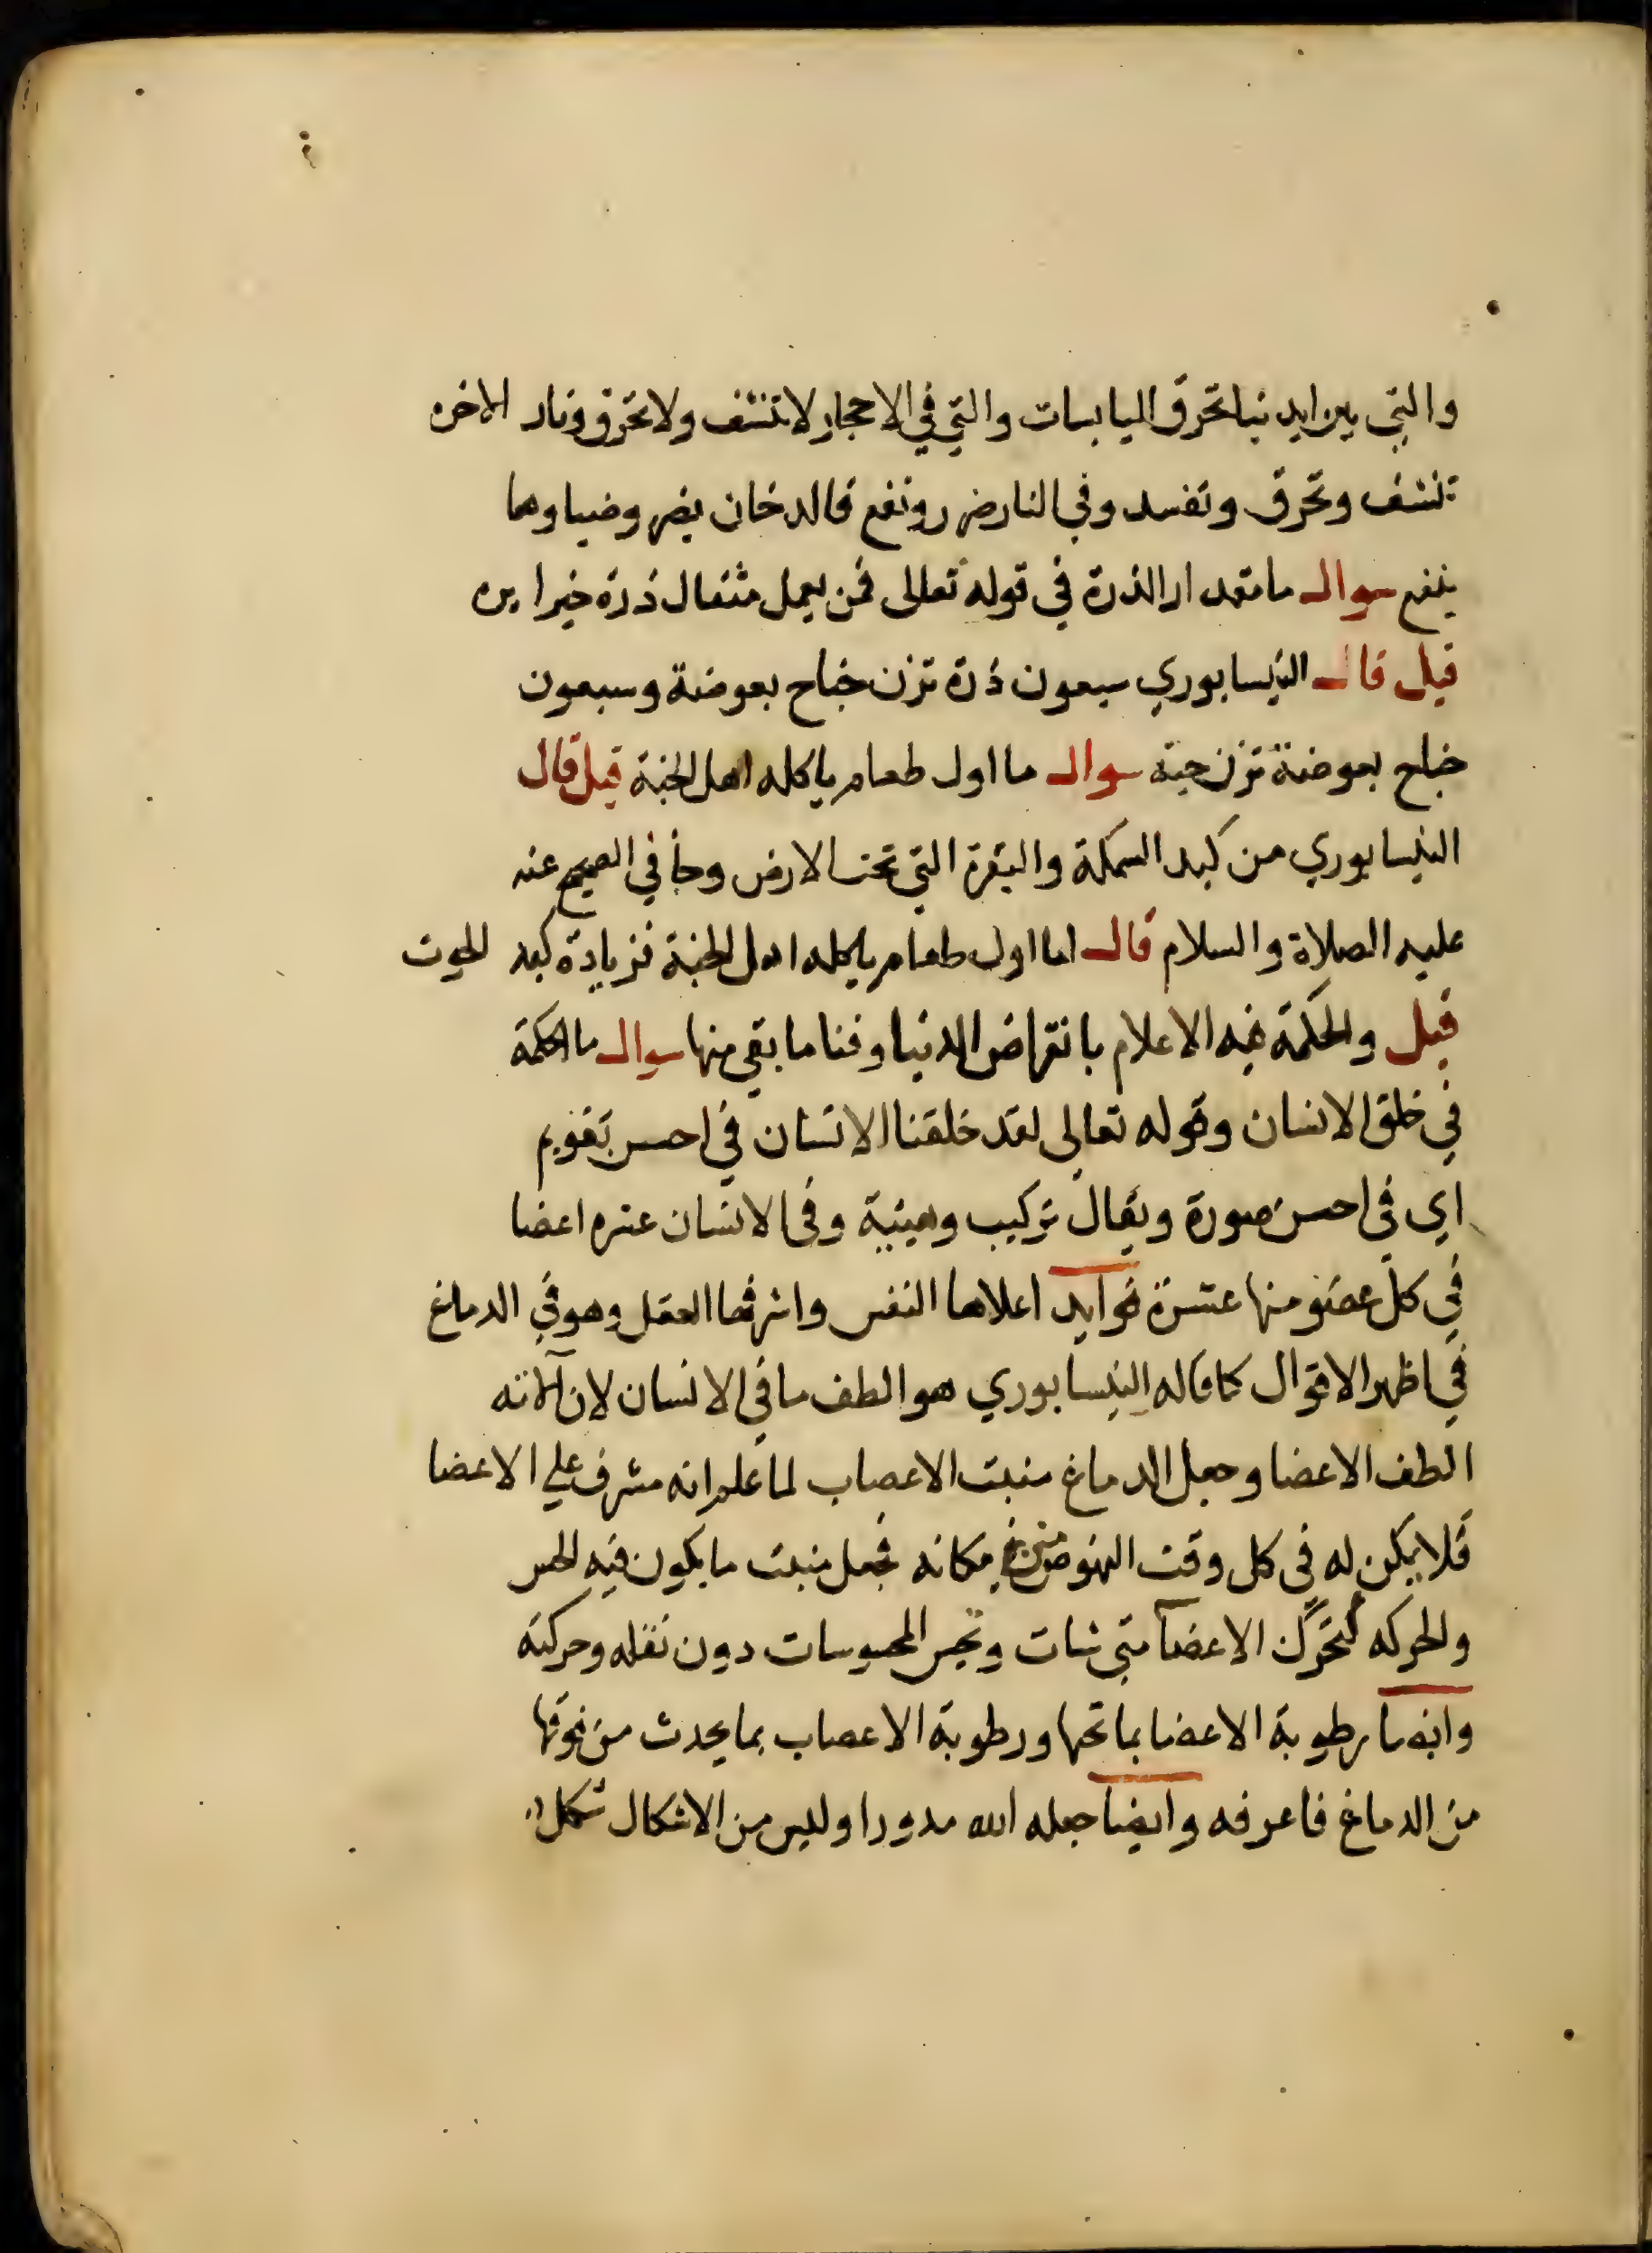 والتي بين ايدينا تحرق اليابسات والتي في الاحجار لا تنشف ولا تحرق ونار الاخره
تنشف وتحرق وتفسد وفي النار ضر ونفع فالدخان يضر وضياوها
ينفع سوال ما مقدار الذرة في قوله تعالى فمن يعمل مثقال ذرة خيرا يره
قيل قال النيسابوري سبعون ذرة تزن جناح بعوضة وسبعون
جناح بعوضة تزن حبة سوال ما اول طعام ياكله اهل الجنة قيل قال
النيسابوري من كبد السمكة والبقرة التي تحت الارض وجا في الصحيح عنه
عليه الصلاة والسلام قال اما اول طعام ياكله اهل الجنة فزيادة كبد الحوت
قيل والحكمة فيه الاعلام بانقراض الدنيا وفنا ما بقي منها سوال ما الحكمة
في خلق الانسان وقوله تعالى لقد خلقنا الانسان في احسن تقويم
اي في احسن صورة ويقال تركيب وهيئة وفي الانسان عشره اعضا
في كل عضو منها عشرة فوايد اعلاها النفس واشرفها العقل وهو في الدماغ
في اظهر الاقوال كما قاله النيسابوري هو الطف ما في الانسان لان الاته
الطف الاعضا وجعل الدماغ منبت الاعصاب لما علم انه مشرف علي الاعضا
فلا يمكن له في كل وقت النهوض من مكانه فجعل منبت ما يكون فيه الحس
والحركه لتحرك الاعضا متى شات وتحس المحسوسات دون نقله وحركته
وايضا رطوبة الاعضا بما تحتها ورطوبة الاعصاب بما يحدث من فوقها
من الدماغ فاعرفه وايضا جعله الله مدورا وليس من الاشكال شكل